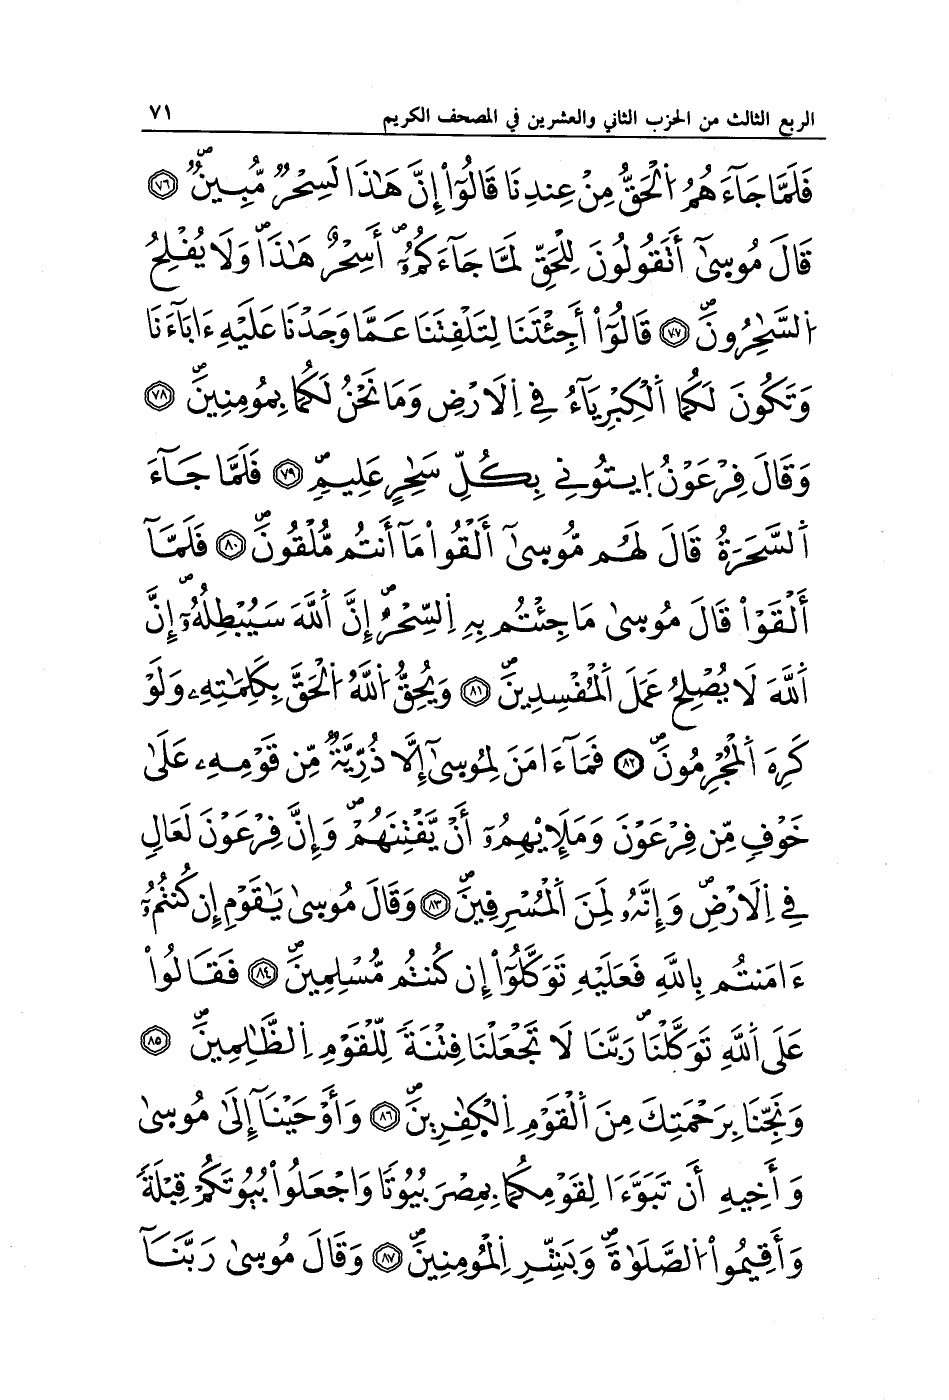 الربع الثالث من الحزب الثاني والعشرين في المصحف الكريم ٧١
فَلَمَّا جَآءَهُمُ اُ۬لْحَقُّ مِنْ عِندِنَا قَالُوٓاْ إِنَّ هَٰذَا لَسِحْرٞ مُّبِينٞۖ ٧٦
قَالَ مُوسَىٰٓ أَتَقُولُونَ لِلْحَقِّ لَمَّا جَآءَكُمُۥٓۖ أَسِحْرٌ هَٰذَاۖ وَلَا يُفْلِحُ
اُ۬لسَّٰحِرُونَۖ ٧٧ قَالُوٓاْ أَجِئْتَنَا لِتَلْفِتَنَا عَمَّا وَجَدْنَا عَلَيْهِ ءَابَآءَنَا
وَتَكُونَ لَكُمَا اَ۬لْكِبْرِيَآءُ فِے اِ۬لَارْضِ وَمَا نَحْنُ لَكُمَا بِمُومِنِينَۖ ٧٨
وَقَالَ فِرْعَوْنُ اُ۪يتُونِے بِكُلِّ سَٰحِرٍ عَلِيمٖۖ ٧٩ فَلَمَّا جَآءَ
اَ۬لسَّحَرَةُ قَالَ لَهُم مُّوسَىٰٓ أَلْقُواْ مَآ أَنتُم مُّلْقُونَۖ ٨٠ فَلَمَّآ
أَلْقَوْاْ قَالَ مُوسَىٰ مَا جِئْتُم بِهِ اِ۬لسِّحْرُۖ إِنَّ اَ۬للَّهَ سَيُبْطِلُهُۥٓۖ إِنَّ
اَ۬للَّهَ لَا يُصْلِحُ عَمَلَ اَ۬لْمُفْسِدِينَۖ ٨١ وَيُحِقُّ اُ۬للَّهُ اُ۬لْحَقَّ بِكَلِمَٰتِهِۦ وَلَوْ
كَرِهَ اَ۬لْمُجْرِمُونَۖ ٨٢ فَمَآ ءَامَنَ لِمُوسَىٰٓ إِلَّا ذُرِّيَّةٞ مِّن قَوْمِهِۦ عَلَىٰ
خَوْفٖ مِّن فِرْعَوْنَ وَمَلَإِيْهِمُۥٓ أَنْ يَّفْتِنَهُمْۖ وَإِنَّ فِرْعَوْنَ لَعَالٖ
فِے اِ۬لَارْضِۖ وَإِنَّهُۥ لَمِنَ اَ۬لْمُسْرِفِينَۖ ٨٣ وَقَالَ مُوسَىٰ يَٰقَوْمِ إِن كُنتُمُۥٓ
ءَامَنتُم بِاللَّهِ فَعَلَيْهِ تَوَكَّلُوٓاْ إِن كُنتُم مُّسْلِمِينَۖ ٨٤ فَقَالُواْ
عَلَى اَ۬للَّهِ تَوَكَّلْنَاۖ رَبَّنَا لَا تَجْعَلْنَا فِتْنَةٗ لِّلْقَوْمِ اِ۬لظَّٰلِمِينَۖ ٨٥
وَنَجِّنَا بِرَحْمَتِكَ مِنَ اَ۬لْقَوْمِ اِ۬لْكَٰفِرِينَۖ ٨٦ وَأَوْحَيْنَآ إِلَىٰ مُوسَىٰ
وَأَخِيهِ أَن تَبَوَّءَا لِقَوْمِكُمَا بِمِصْرَ بُيُوتٗا وَاجْعَلُواْ بُيُوتَكُمْ قِبْلَةٗ
وَأَقِيمُواْ اُ۬لصَّلَوٰةَۖ وَبَشِّرِ اِ۬لْمُومِنِينَۖ ٨٧ وَقَالَ مُوسَىٰ رَبَّنَآ